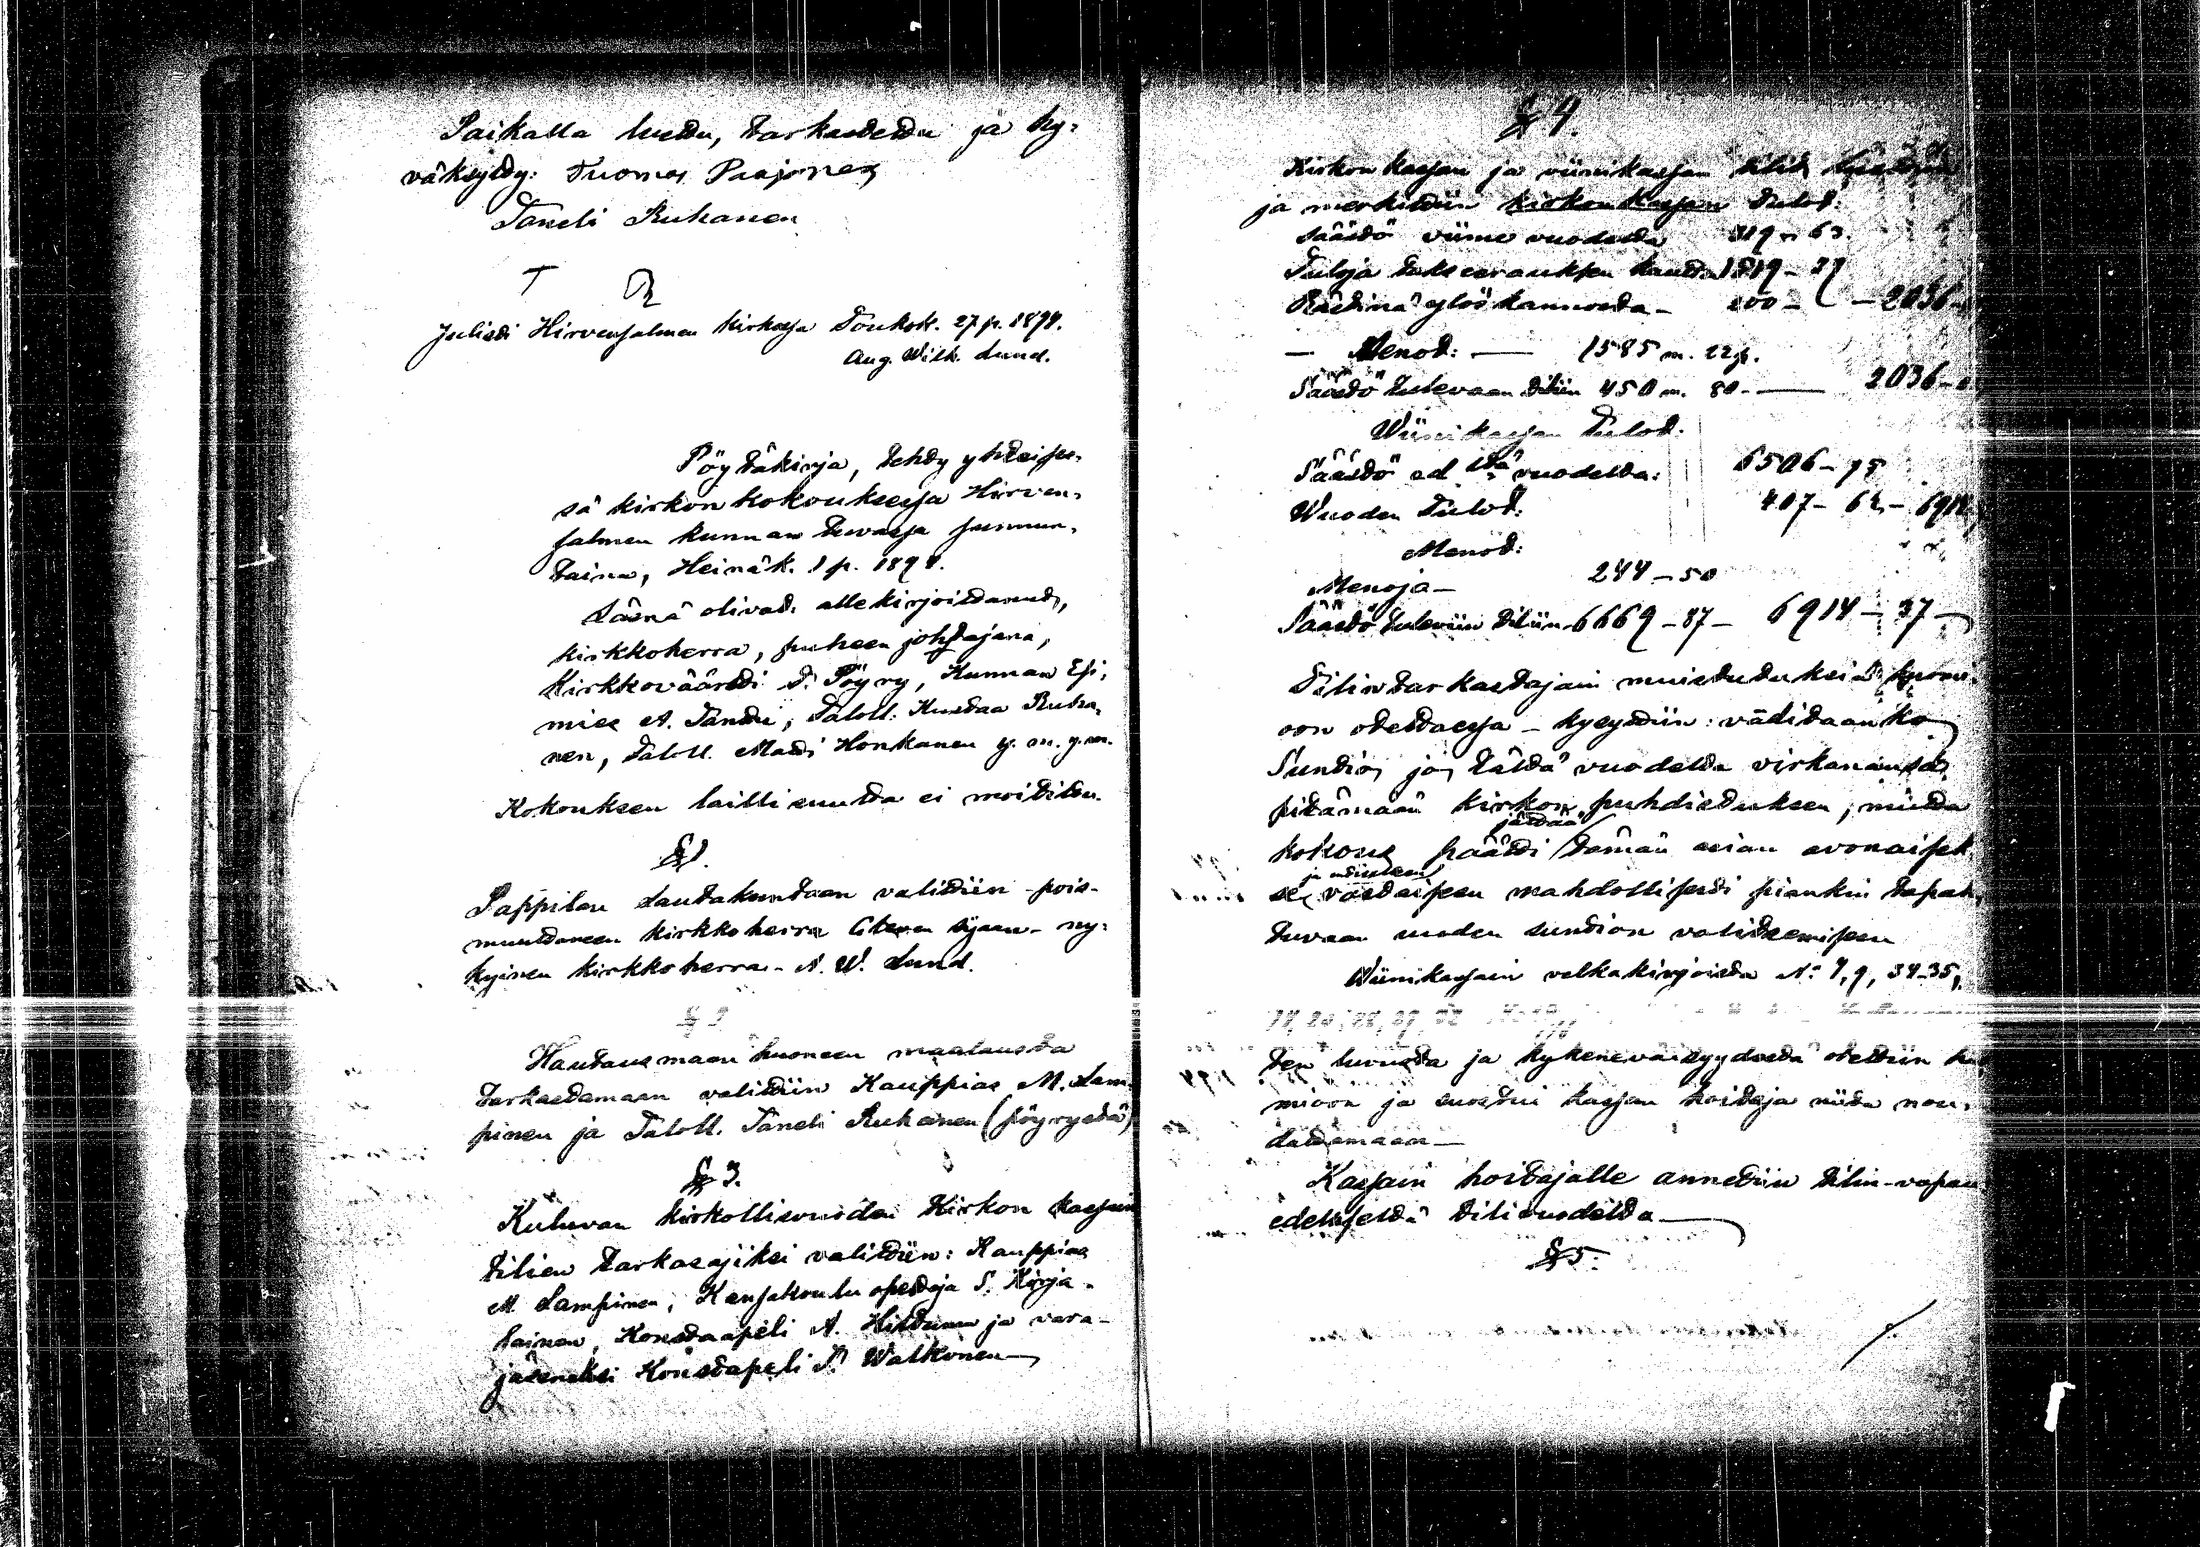 Paikalla luettu, tarkastettu ja hy-
väksytty: Tuomas Paajonen
Taneli Ruhanen
Julisti Hirvensalmen kirkossa Toukok. 27 p. 1894.
Aug. Wilh. Lund.
Pöytäkirja, tehty yhteises-
sä kirkonkokouksessa Hirven-
salmen kunnan tuvassa sunnun-
taina, Heinäk. 1 p. 1894.
Läsnä olivat: allekirjoittanut,
kirkkoherra, puheen johtajana,
Kirkkoväärtti T. Pöyry, Kunnan Esi-
mies A. Tanttu, Taloll. Kustaa Ruha-
nen, Taloll. Matti Honkanen y. m. y. m.
Kokouksen laillisuutta ei moitittu.
§ 1.
Pappilan Lautakuntaan valittiin - pois-
muuttaneen kirkkoherra sijaan - ny-
kyinen kirkkoherra - A. W. Lund.
§ 2
Hautausmaan huoneen maalausta
tarkastamaan valittiin Kauppias M. Lam-
pinen ja Taloll. Taneli Ruhanen (pöyrystä)
§ 3.
Kuluvan kirkollisvuoden Kirkon kassain
tilien tarkasajiksi valittiin: Kauppias
M. Lampinen, Kansakoulu opettaja S. Kirja-
lainen, Konstaapeli A. Hiltunen ja vara-
jäseneksi Konstapeli P. Walkonen
§ 4.
Kirkon kassan ja viinikassan tilit
ja merkittiin kirkon kassan tulot:
Säästö viime vuodelta 319 - 63.
Tuloja takseerauksen kautta 1519 - 37
Rästinä ylöskannosta - 200 - - 2036 -
- Menot: - 1585 m. 22 p.
Säästö tulevaan tiliin 450 m. 80 - 2036 -
Wiinikassan Tulot:
Säästö ed ltä vuodelta: 6506 - 75
Wuoden Tulot: 407 - 62 - 6914
Menot:
Menoja - 244 - 50
Säästö tuleviin tiliin - 6669 - 87 - 6914 - 37 -
Tilintarkastajain muistutuksia huomi-
oon otettaessa - kysyttiin: väliaanko
Suntio jo tältä vuodelta virkanansa
pitämään kirkon puhdistuksen, mutta
kokous päätti jättää tämän asian avonaisek-
si ja uuteen vastaisen mahdollisesti piankin tapah-
tuvaan uuden suntion valitsemiseen
Wiinikassain velkakirjoista N:o 7, 9, 34-35,
18, 20, 28, 29, 32
ten luvusta ja kykeneväisyydestä otettiin hu
mioon ja suostui kassan hoitaja niitä nou-
dattamaan -
Kassain hoitajalle annettiin tilin-vapau
edellisestä tilivuodelta
§ 5.